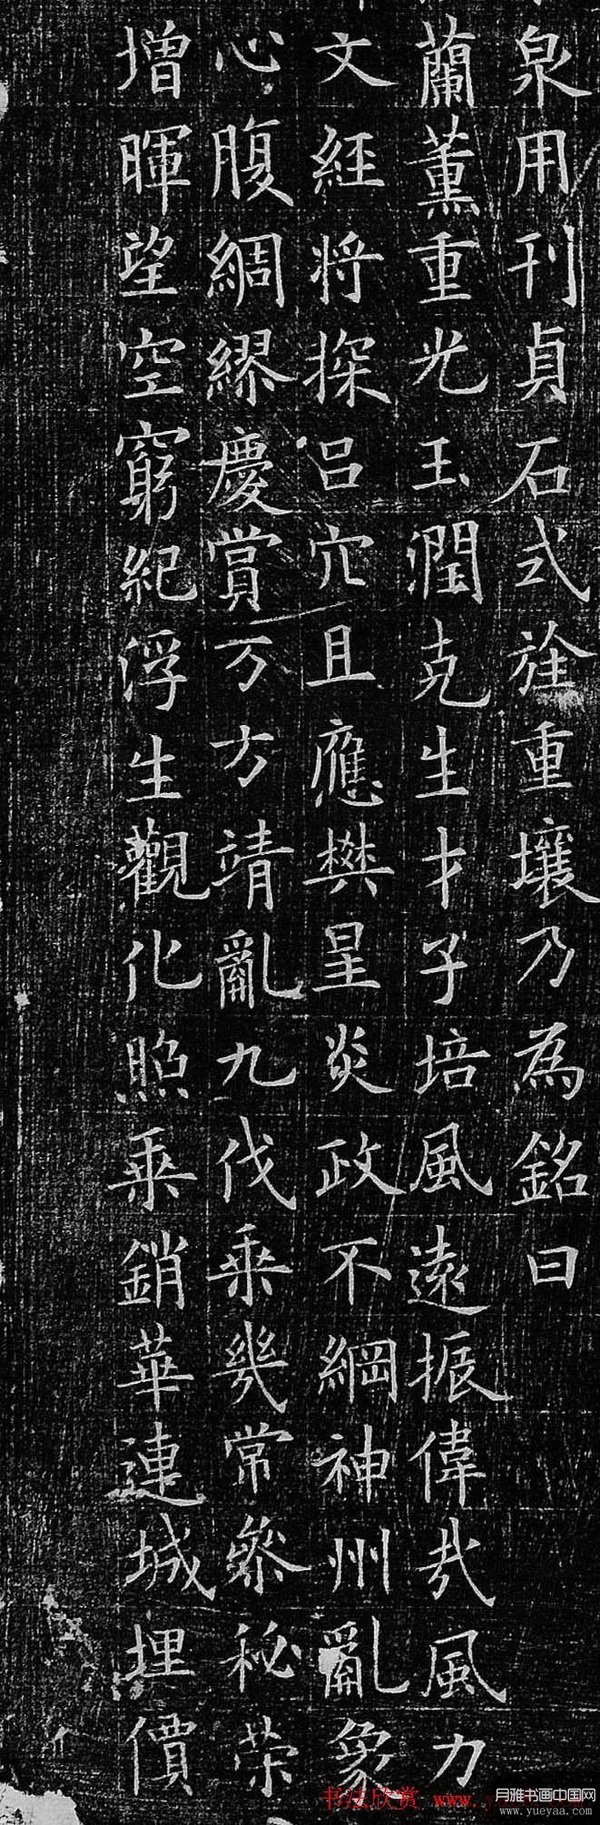 泉用刊貞石式旌重壤乃為銘曰
蘭薰重光玉潤克生才子培風遠振偉哉風力
文經將探呂穴且應樊星炎政不綱神州亂象
心腹綢繆慶賞万方靖亂九伐乘幾常參秘荣
增暉望空窮紀浮生觀化照乘銷華連城埋價
书法欣赏 www.y
月雅书画中国网
www.yueyaa.com